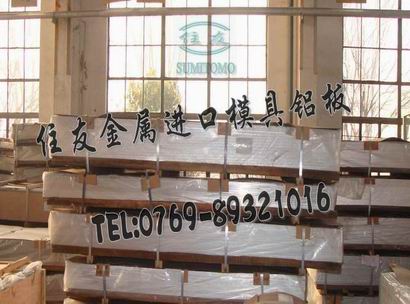 住友
SUMITOMO
住友金属进口模具铝板
TEL:0769-89321016